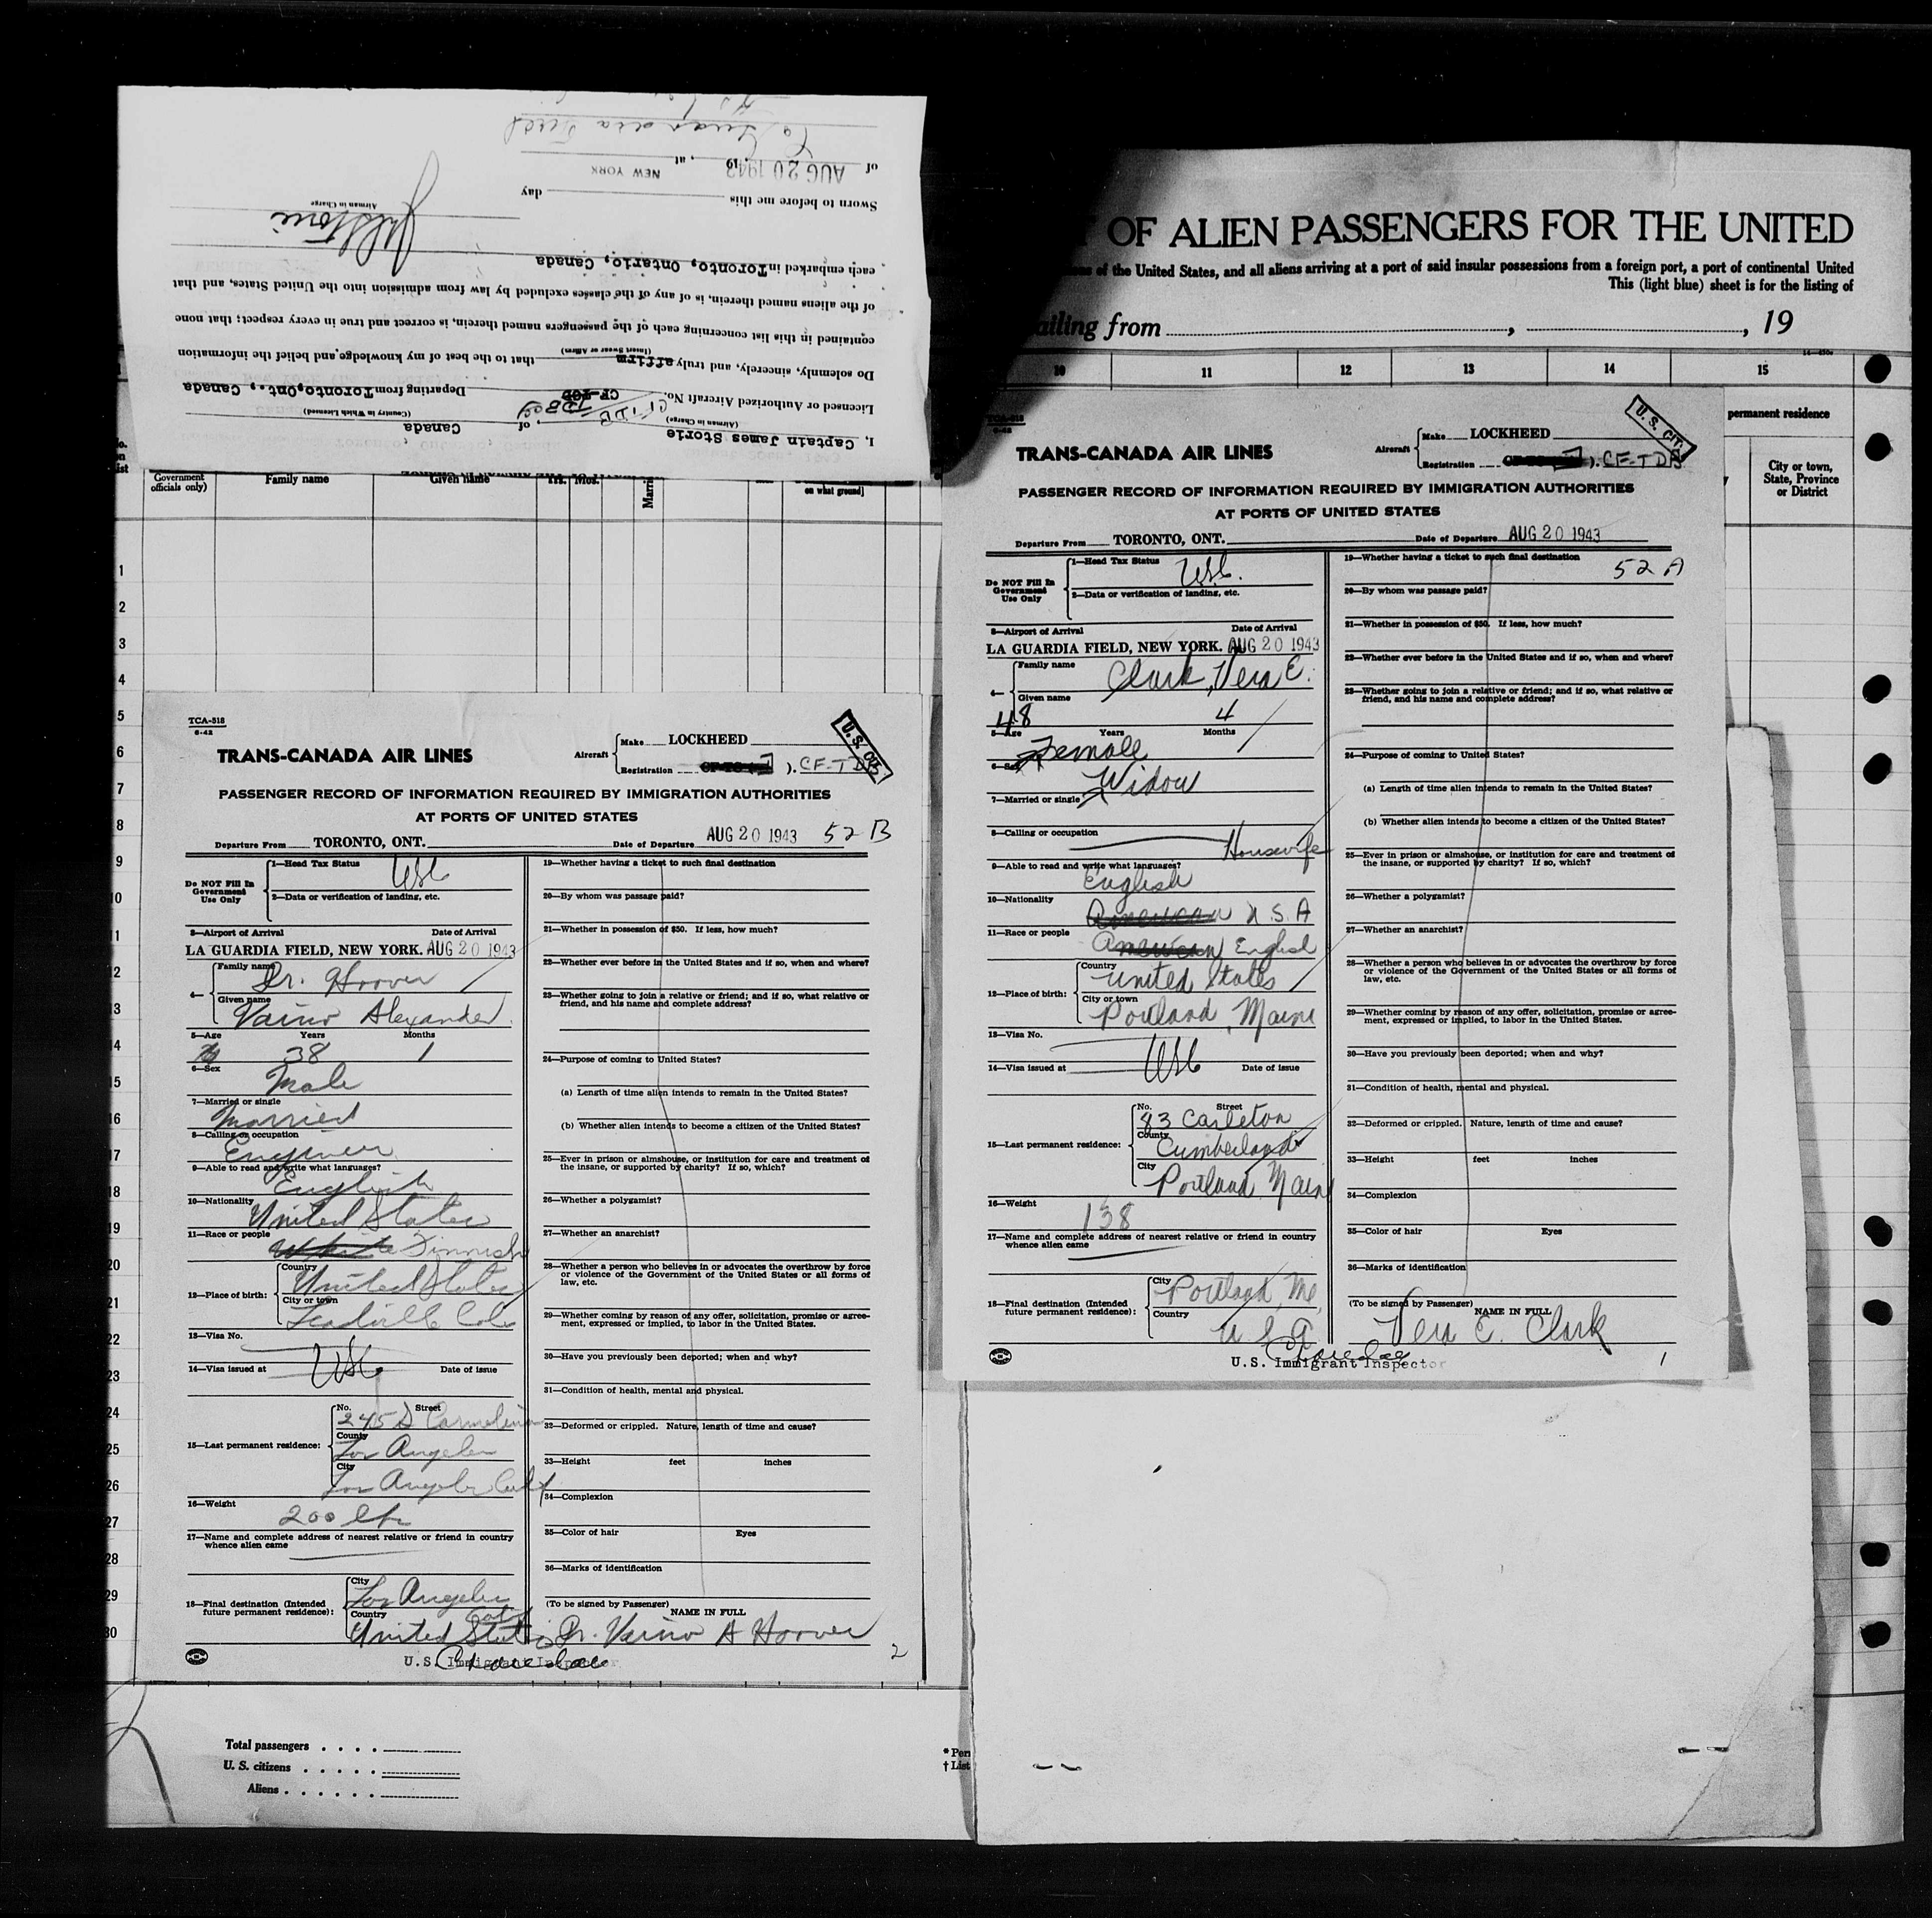 I, Captain James Storie of Canada
(Airman in Charge) (Country in Which Licensed)
Licensed or Authorized Aircraft No. CF-TDB Departing from Toronto, Ont., Canada
Do solemnly, sincerely, and truly affirm that to the best of my knowledge and belief the information
(Insert Swear or Affirm)
contained in this list concerning each of the passengers named therein, is correct and true in every respect; that none
of the aliens named therein, is of any of the classes excluded by law from admission into the United States, and that
each embarked in Toronto, Ontario, Canada
Airman in Charge
Sworn to before me this day
of AUG 20 1943 19 , at NEW YORK
Government officials only)
Family name
Given name
Yrs.
Mos.
on what ground]
1
2
3
4
5
6
7
8
9
10
11
12
13
14
15
16
17
18
19
20
21
22
23
24
25
26
27
28
29
30
TCA-518
6-42
TRANS-CANADA AIR LINES
Aircraft
Make LOCKHEED
Registration CF-TDB
PASSENGER RECORD OF INFORMATION REQUIRED BY IMMIGRATION AUTHORITIES
AT PORTS OF UNITED STATES
Departure From TORONTO, ONT. Date of Departure AUG 20 1943 52 B
Do NOT Fill In Government Use Only
1—Head Tax Status USC
2—Data or verification of landing, etc.
3—Airport of Arrival Date of Arrival
LA GUARDIA FIELD, NEW YORK. AUG 20 1943
4— Family name Dr. Hoover
Given name Vaino Alexander
5—Age Years 38 Months 1
6—Sex Male
7—Married or single Married
8—Calling or occupation Engineer
9—Able to read and write what languages? English
10—Nationality United States
11—Race or people White Finnish
12—Place of birth: Country United States
City or town Leadville Colo
13—Visa No.
14—Visa issued at USC Date of issue
15—Last permanent residence: No. Street 245 S Carmelina
County Los Angeles
City Los Angeles Calif
16—Weight 200 lbs
17—Name and complete address of nearest relative or friend in country whence alien came
18—Final destination (Intended future permanent residence): City Los Angeles Calif
Country United States
19—Whether having a ticket to such final destination
20—By whom was passage paid?
21—Whether in possession of $50. If less, how much?
22—Whether ever before in the United States and if so, when and where?
23—Whether going to join a relative or friend; and if so, what relative or friend, and his name and complete address?
24—Purpose of coming to United States?
(a) Length of time alien intends to remain in the United States?
(b) Whether alien intends to become a citizen of the United States?
25—Ever in prison or almshouse, or institution for care and treatment of the insane, or supported by charity? If so, which?
26—Whether a polygamist?
27—Whether an anarchist?
28—Whether a person who believes in or advocates the overthrow by force or violence of the Government of the United States or all forms of law, etc.
29—Whether coming by reason of any offer, solicitation, promise or agreement, expressed or implied, to labor in the United States.
30—Have you previously been deported; when and why?
31—Condition of health, mental and physical.
32—Deformed or crippled. Nature, length of time and cause?
33—Height feet inches
34—Complexion
35—Color of hair Eyes
36—Marks of identification
(To be signed by Passenger) NAME IN FULL
Dr. Vaino A Hoover
U.S. Immigrant Inspector
2
Total passengers . . . .
U. S. citizens . . . . .
Aliens . . . . . .
OF ALIEN PASSENGERS FOR THE UNITED
of the United States, and all aliens arriving at a port of said insular possessions from a foreign port, a port of continental United
This (light blue) sheet is for the listing of
ailing from , , 19
10 11 12 13 14 15
permanent residence
City or town, State, Province or District
TRANS-CANADA AIR LINES
Aircraft
Make LOCKHEED
Registration CF-TDB
U. S. CIT.
PASSENGER RECORD OF INFORMATION REQUIRED BY IMMIGRATION AUTHORITIES
AT PORTS OF UNITED STATES
Departure From TORONTO, ONT. Date of Departure AUG 20 1943
Do NOT Fill In Government Use Only
1—Head Tax Status USC.
2—Data or verification of landing, etc.
3—Airport of Arrival Date of Arrival
LA GUARDIA FIELD, NEW YORK. AUG 20 1943
4— Family name Clark, Vera E.
Given name
48 4
5—Age Years Months
6—Sex Female
7—Married or single Widow
8—Calling or occupation Housewife
9—Able to read and write what languages? English
10—Nationality American U.S.A
11—Race or people American English
12—Place of birth: Country United States
City or town Portland, Maine
13—Visa No.
14—Visa issued at USC Date of issue
15—Last permanent residence: No. Street 83 Carleton
County Cumberland
City Portland Maine
16—Weight 138
17—Name and complete address of nearest relative or friend in country whence alien came
18—Final destination (Intended future permanent residence): City Portland, Me.
Country U S A
19—Whether having a ticket to such final destination 52 A
20—By whom was passage paid?
21—Whether in possession of $50. If less, how much?
22—Whether ever before in the United States and if so, when and where?
23—Whether going to join a relative or friend; and if so, what relative or friend, and his name and complete address?
24—Purpose of coming to United States?
(a) Length of time alien intends to remain in the United States?
(b) Whether alien intends to become a citizen of the United States?
25—Ever in prison or almshouse, or institution for care and treatment of the insane, or supported by charity? If so, which?
26—Whether a polygamist?
27—Whether an anarchist?
28—Whether a person who believes in or advocates the overthrow by force or violence of the Government of the United States or all forms of law, etc.
29—Whether coming by reason of any offer, solicitation, promise or agreement, expressed or implied, to labor in the United States.
30—Have you previously been deported; when and why?
31—Condition of health, mental and physical.
32—Deformed or crippled. Nature, length of time and cause?
33—Height feet inches
34—Complexion
35—Color of hair Eyes
36—Marks of identification
(To be signed by Passenger) NAME IN FULL
Vera E. Clark
U.S. Immigrant Inspector
1